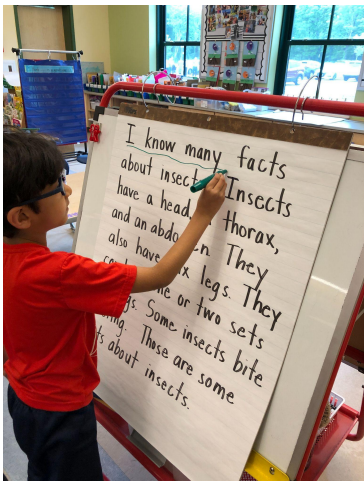 I know many facts
about Insects
have a head, thorax,
and an They
also have legs. They
or two sets
Some insects bite
Those are some
about insects.